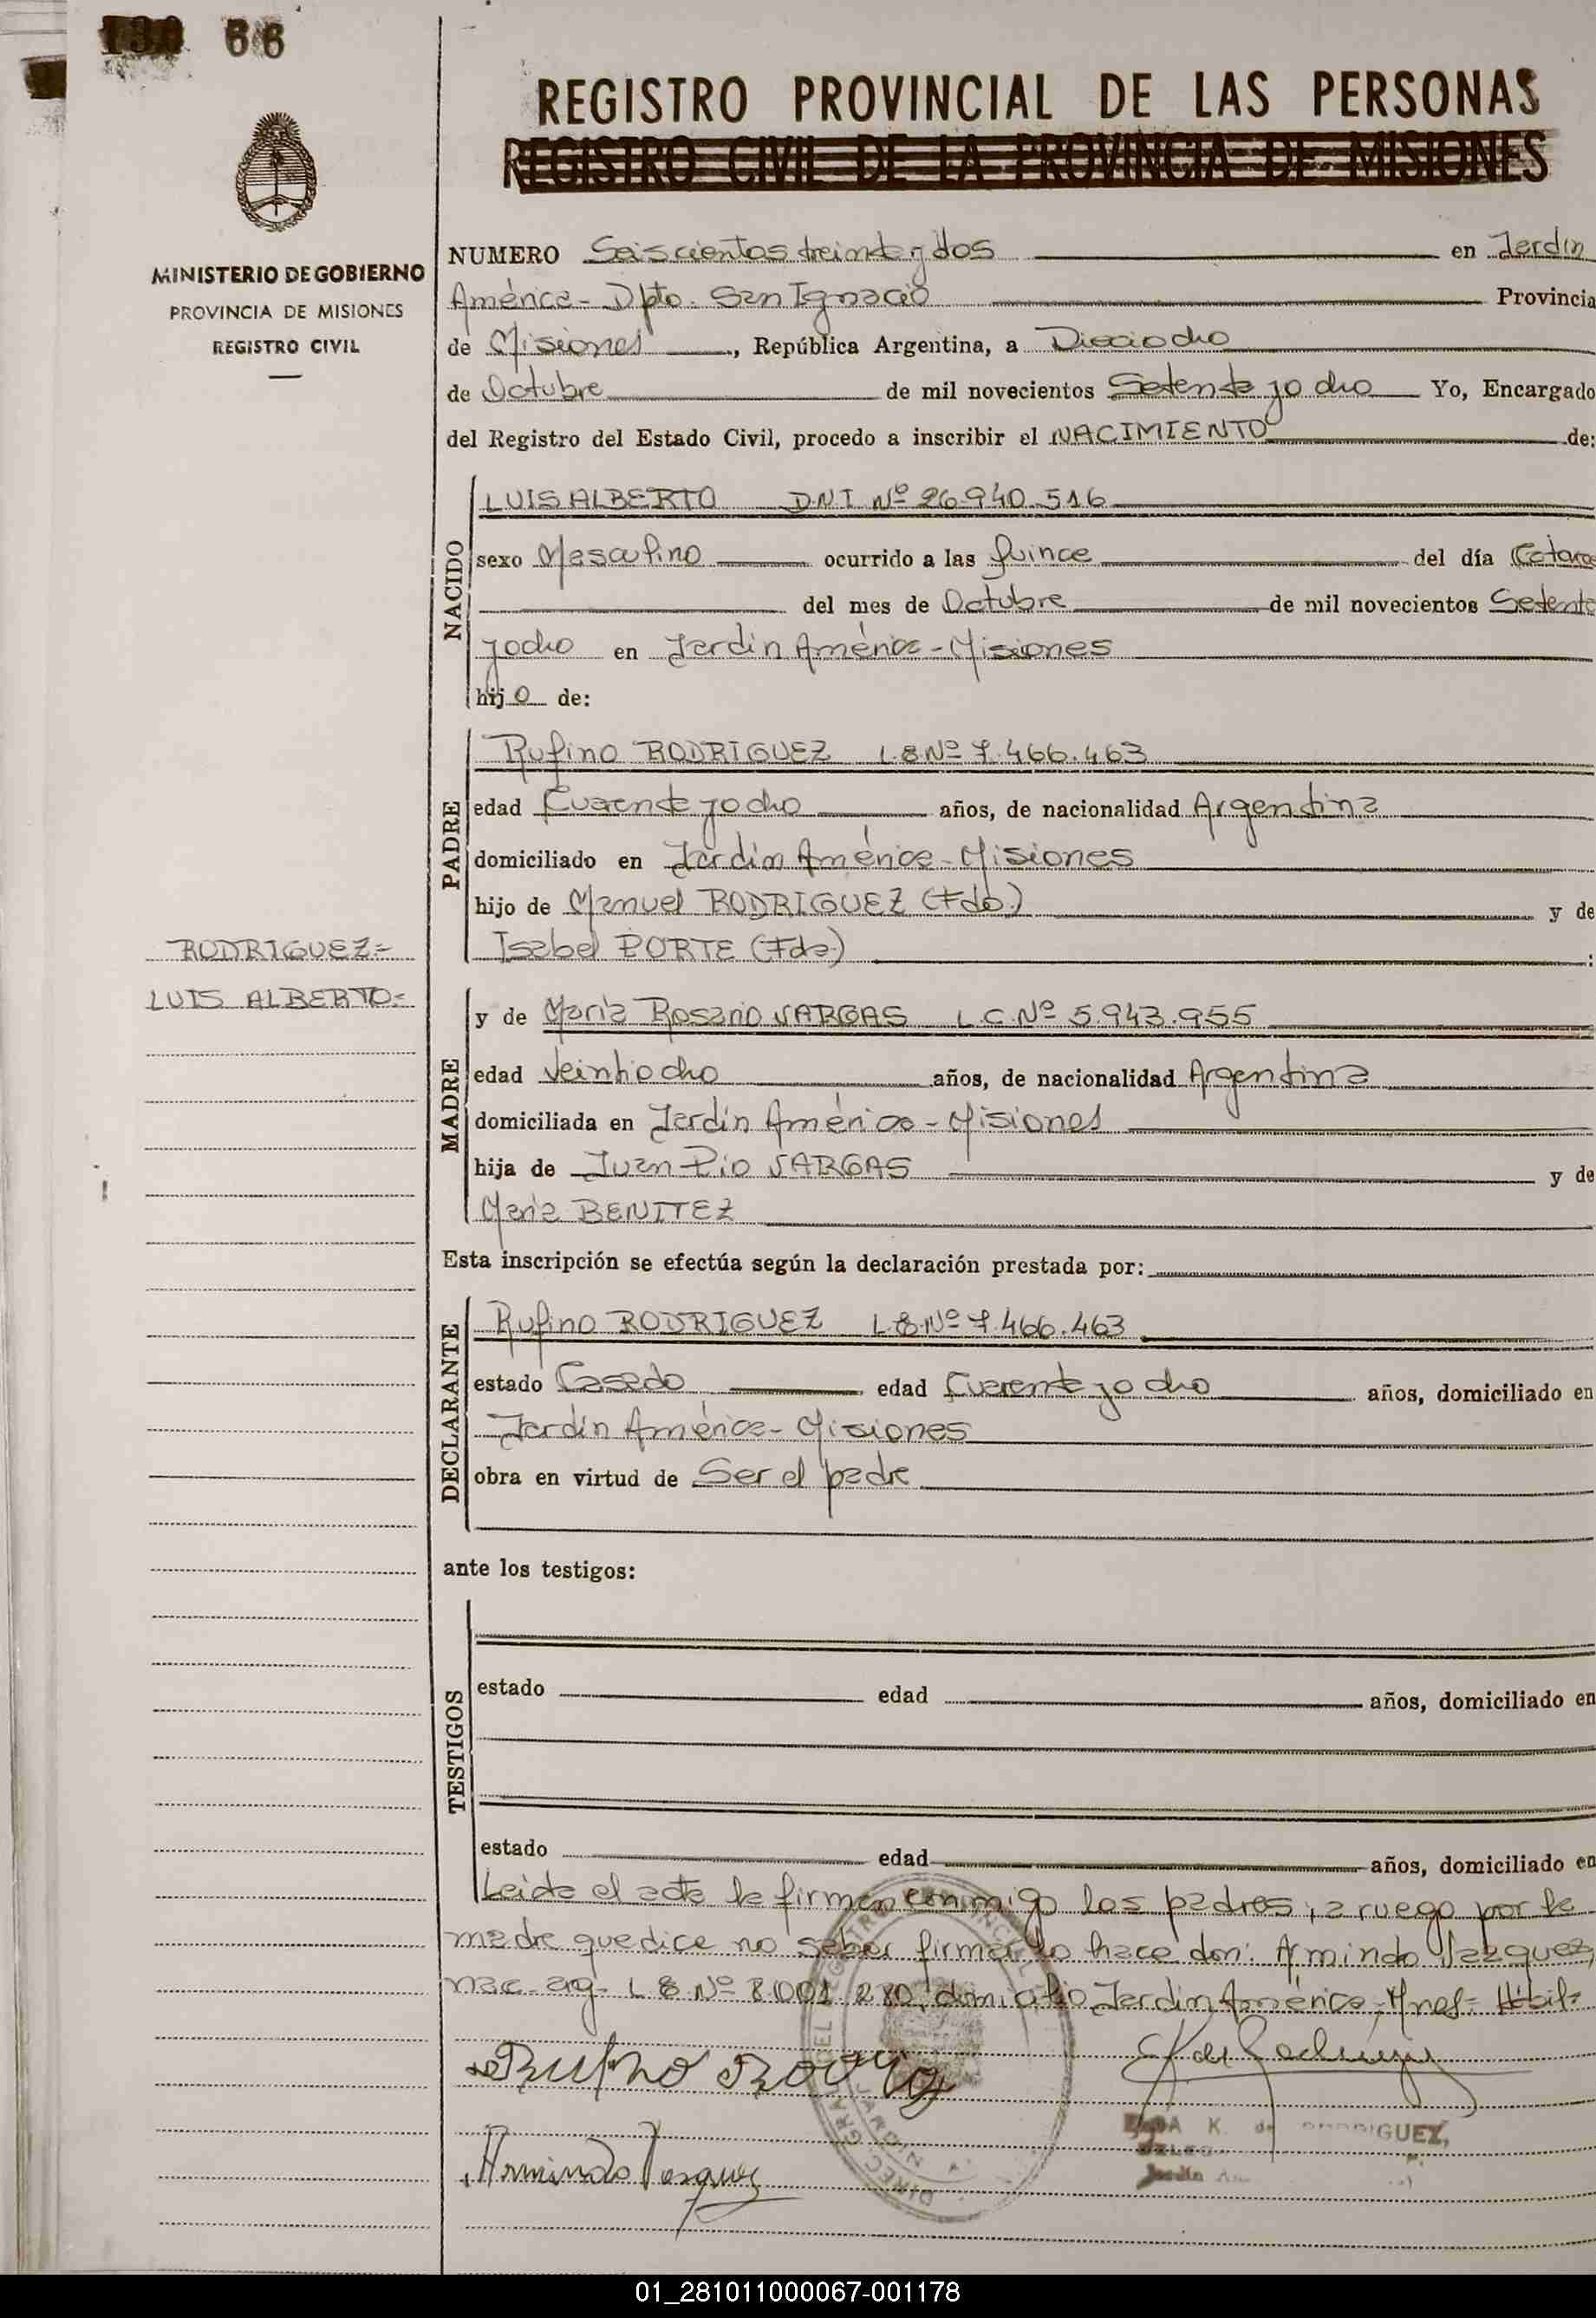 66
REGISTRO PROVINCIAL DE LAS PERSONAS
REGISTRO CIVIL DE LA PROVINCIA DE MISIONES
MINISTERIO DE GOBIERNO
PROVINCIA DE MISIONES
REGISTRO CIVIL
NUMERO Seiscientos treinta y dos en Jardín
América - Dpto. San Ignacio Provincia
de Misiones, República Argentina, a Dieciocho
de Octubre de mil novecientos Setenta y ocho Yo, Encargado
del Registro del Estado Civil, procedo a inscribir el NACIMIENTO de:
NACIDO
LUIS ALBERTO D.N.I. Nº 26.940.516
sexo Masculino ocurrido a las Quince del día Catorce
del mes de Octubre de mil novecientos Setenta
y ocho en Jardín América - Misiones
hijo de:
PADRE
Rufino RODRIGUEZ L.E.Nº 7.466.463
edad Cuarenta y ocho años, de nacionalidad Argentina
domiciliado en Jardín América - Misiones
hijo de Manuel RODRIGUEZ (Fdo.) y de
Isabel PORTE (Fda) :
RODRIGUEZ=
LUIS ALBERTO=
MADRE
y de María Rosario VARGAS L.C.Nº 5.943.955
edad Veintiocho años, de nacionalidad Argentina
domiciliada en Jardín América - Misiones
hija de Juan Pío VARGAS y de
María BENITEZ
Esta inscripción se efectúa según la declaración prestada por:
DECLARANTE
Rufino RODRIGUEZ L.E.Nº 7.466.463
estado Casado edad Cuarenta y ocho años, domiciliado en
Jardín América - Misiones
obra en virtud de Ser el padre
ante los testigos:
TESTIGOS
estado edad años, domiciliado en
estado edad años, domiciliado en
Leída el acta la firman conmigo los padres, a ruego por la
madre que dice no saber firmar lo hace don: Armindo Vazquez,
nac. arg. L E Nº 8.001.280, domicilio Jardín América, Mnes= Hábil=
Rufino
Armindo Vasquez
K. de RODRIGUEZ,
Jardín
01_281011000067-001178